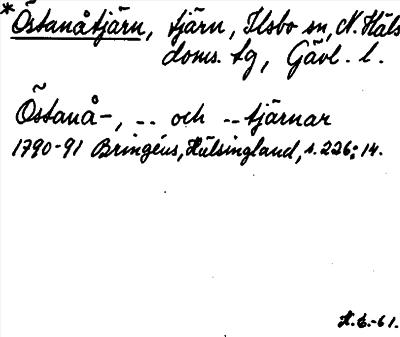 * Östanåtjärn, tjärn, Ilsbo sn, N. Häls
doms. tg, Gävl. l.
Östanå-, -- och --tjärnar
1790-91 Bringéus, Hälsingland, s. 226: 14.
H.E.-61.